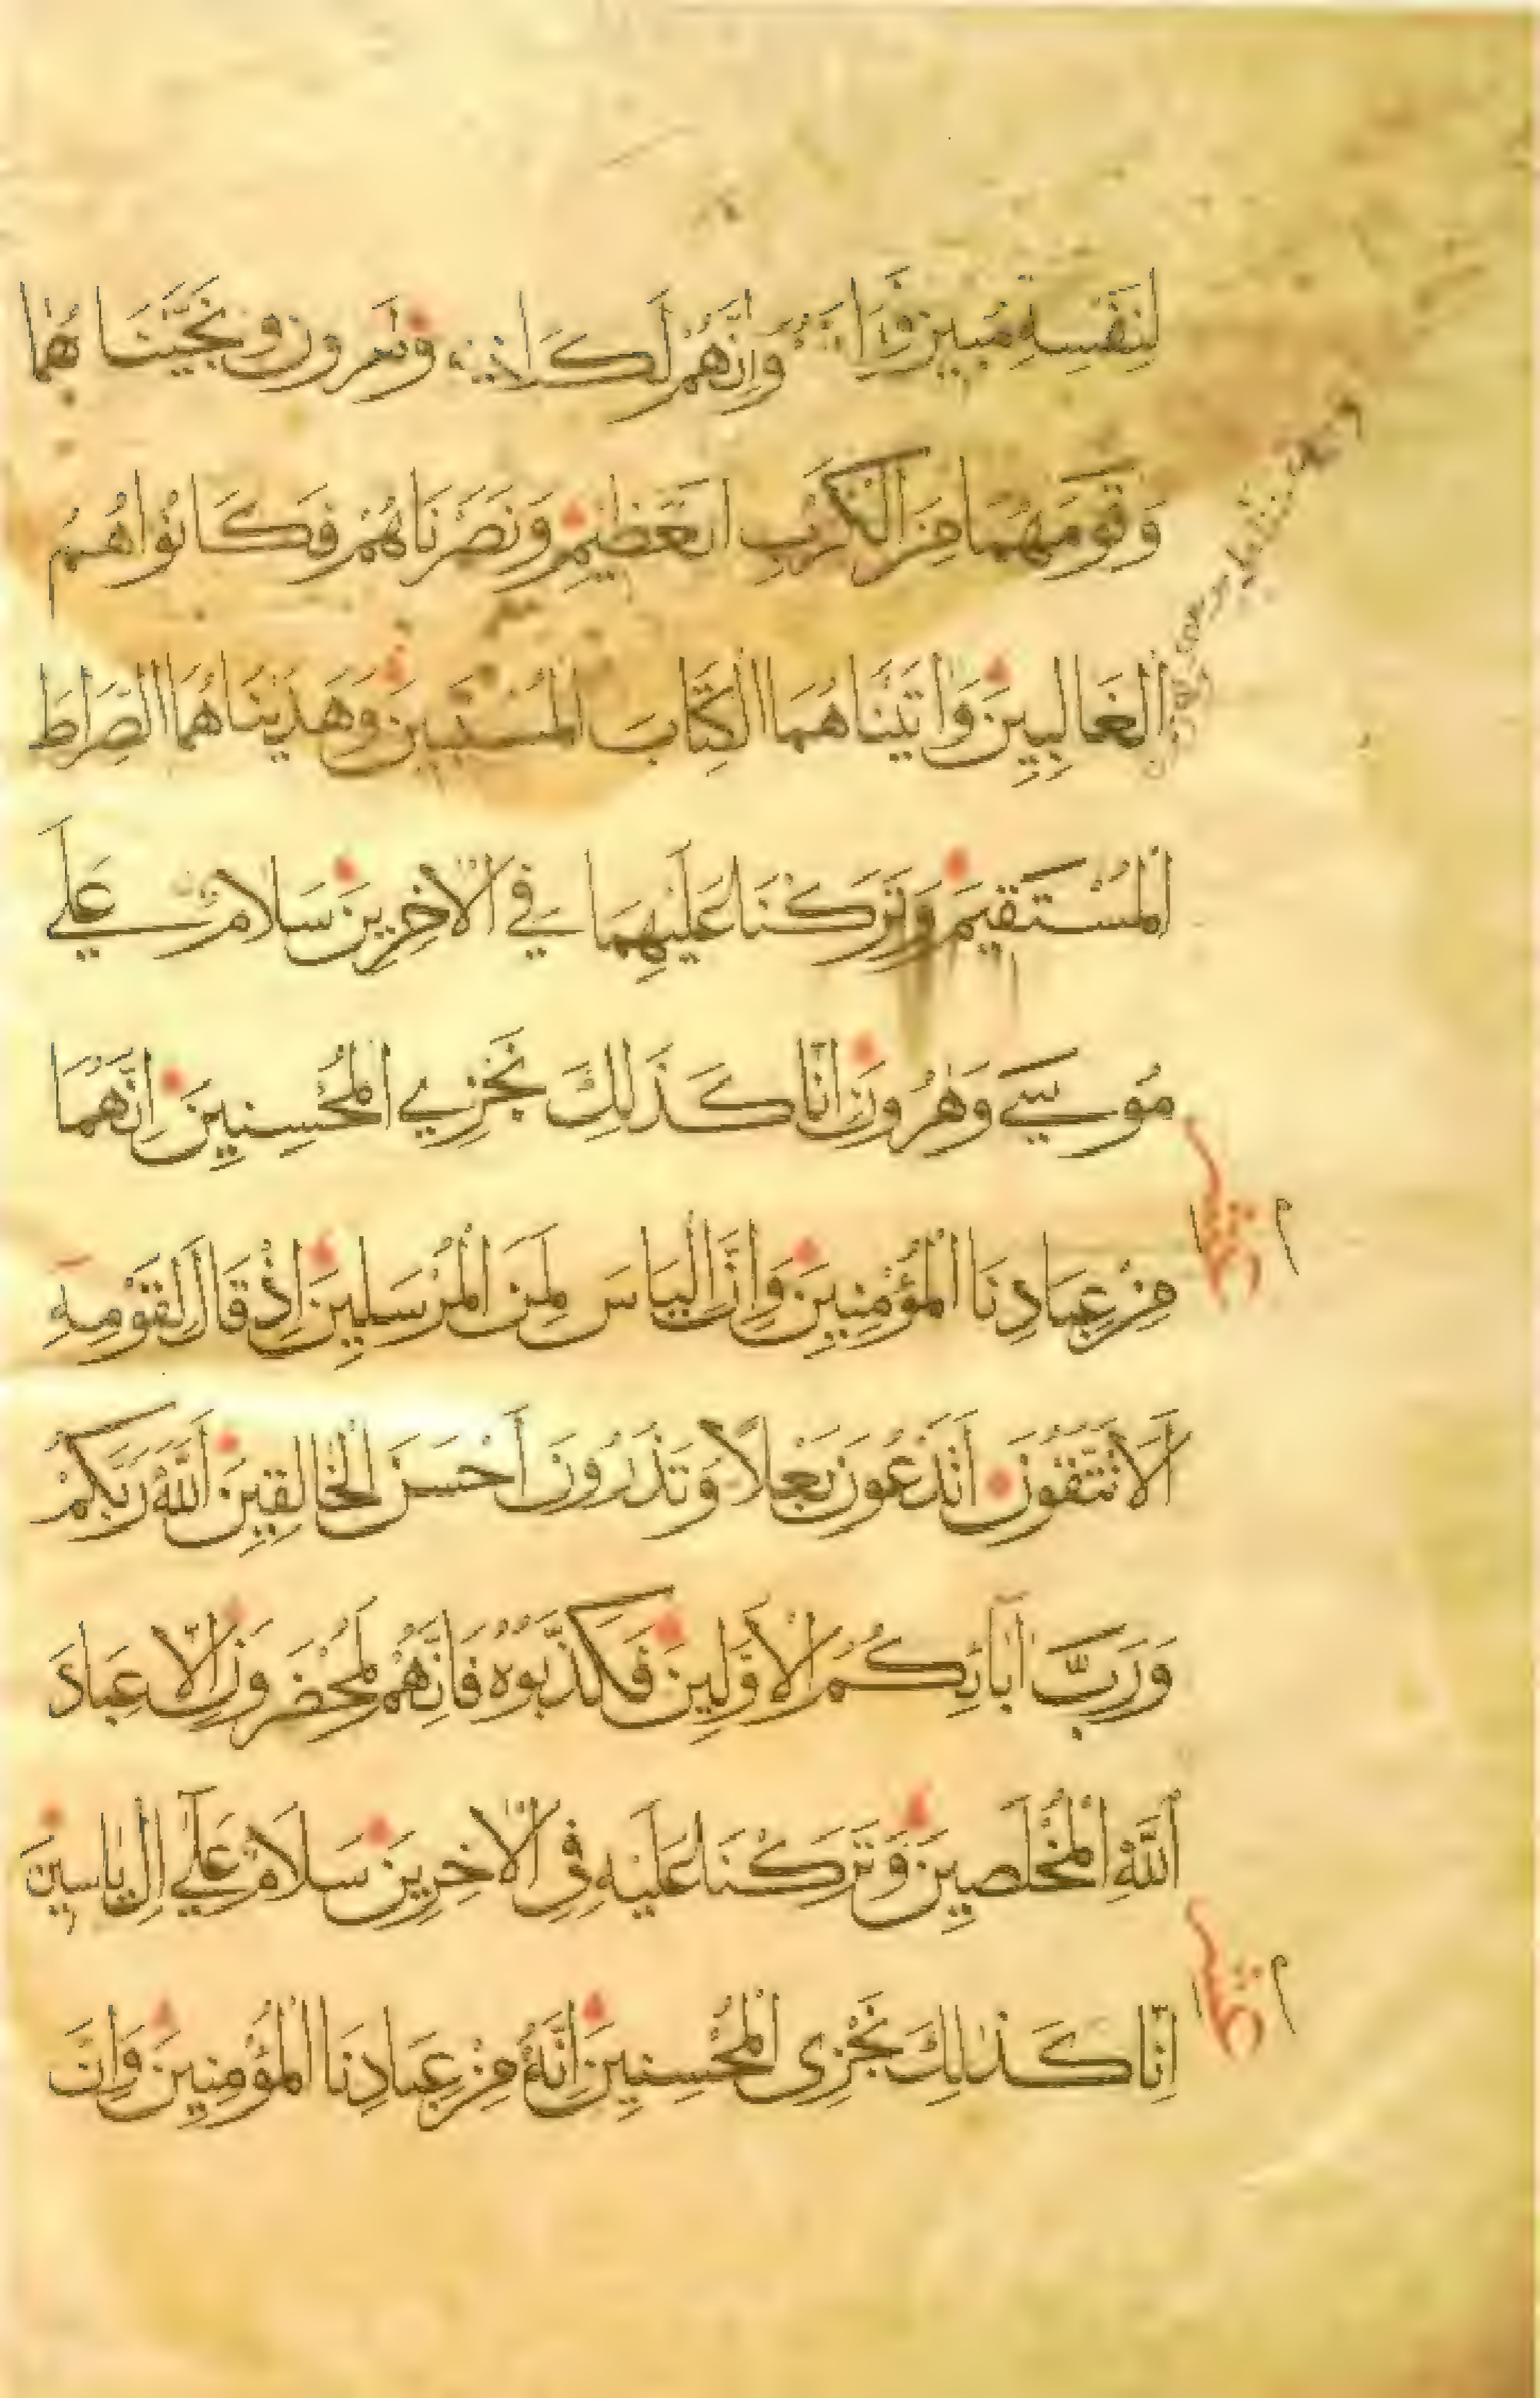 لِنَفْسِهِ مُبِينٌ وَنَجَّيْنَاهُمَا
وَقَوْمَهُمَا مِنَ الْكَرْبِ الْعَظِيمِ وَنَصَرْنَاهُمْ فَكَانُوا هُمُ
الْغَالِبِينَ وَاٰتَيْنَاهُمَا الْكِتَابَ الْمُسْتَبِينَ وَهَدَيْنَاهُمَا الصِّرَاطَ
الْمُسْتَقِيمَ وَتَرَكْنَا عَلَيْهِمَا فِي الْاٰخِرِينَ سَلَامٌ عَلَي
مُوسَي وَهٰرُونَ اِنَّا كَذَلِكَ نَجْزِي الْمُحْسِنِينَ اِنَّهُمَا
مِنْ عِبَادِنَا الْمُؤْمِنِينَ وَاِنَّ اِلْيَاسَ لَمِنَ الْمُرْسَلِينَ اِذْ قَالَ لِقَوْمِهِ
اَلَا تَتَّقُونَ اَتَدْعُونَ بَعْلًا وَتَذَرُونَ اَحْسَنَ الْخَالِقِينَ اَللّٰهَ رَبَّكُمْ
وَرَبَّ اٰبَائِكُمُ الْاَوَّلِينَ فَكَذَّبُوهُ فَاِنَّهُمْ لَمُحْضَرُونَ اِلَّا عِبَادَ
اللّٰهِ الْمُخْلَصِينَ وَتَرَكْنَا عَلَيْهِ فِي الْاٰخِرِينَ سَلَامٌ عَلَي اِلْ يَاسِينَ
اِنَّا كَذٰلِكَ نَجْزِي الْمُحْسِنِينَ اِنَّهُ مِنْ عِبَادِنَا الْمُؤْمِنِينَ وَاِنَّ